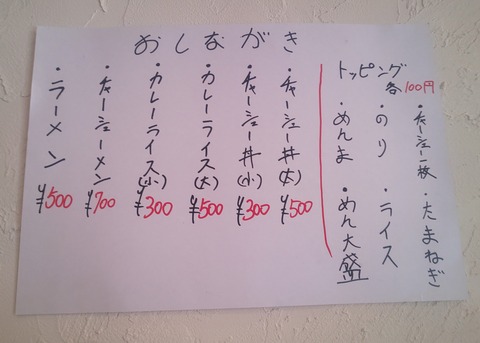 おしながき
トッピング
各100円
・チャーシュー一枚
・たまねぎ
・のり
・ライス
・めんま
・めん大盛
・チャーシュー丼(大)
¥500
・チャーシュー丼(小)
¥300
・カレーライス(大)
¥500
・カレーライス(小)
¥300
・チャーシューメン
¥700
・ラーメン
¥500